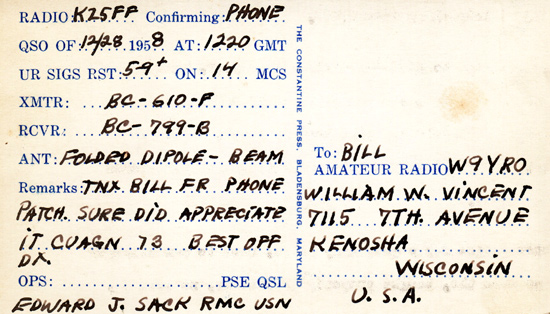 RADIO: K25FF Confirming: PHONE
QSO OF 12/28 1958 AT: 1220 GMT
UR SIGS RST: 59+ ON: 14 MCS
XMTR: BC-610-F
RCVR: BC-799-B
ANT: FOLDED DIPOLE- BEAM
Remarks: TNX. BILL FR PHONE
PATCH. SURE DID APPRECIATE
IT CUAGN 73 BEST OFF
DX.
OPS: PSE QSL
EDWARD J. SACK RMC USN
THE CONSTANTINE PRESS, BLADENSBURG, MARYLAND
To: BILL
AMATEUR RADIO W9YRO
WILLIAM W. VINCENT
7115 7TH. AVENUE
KENOSHA
WISCONSIN
U.S.A.